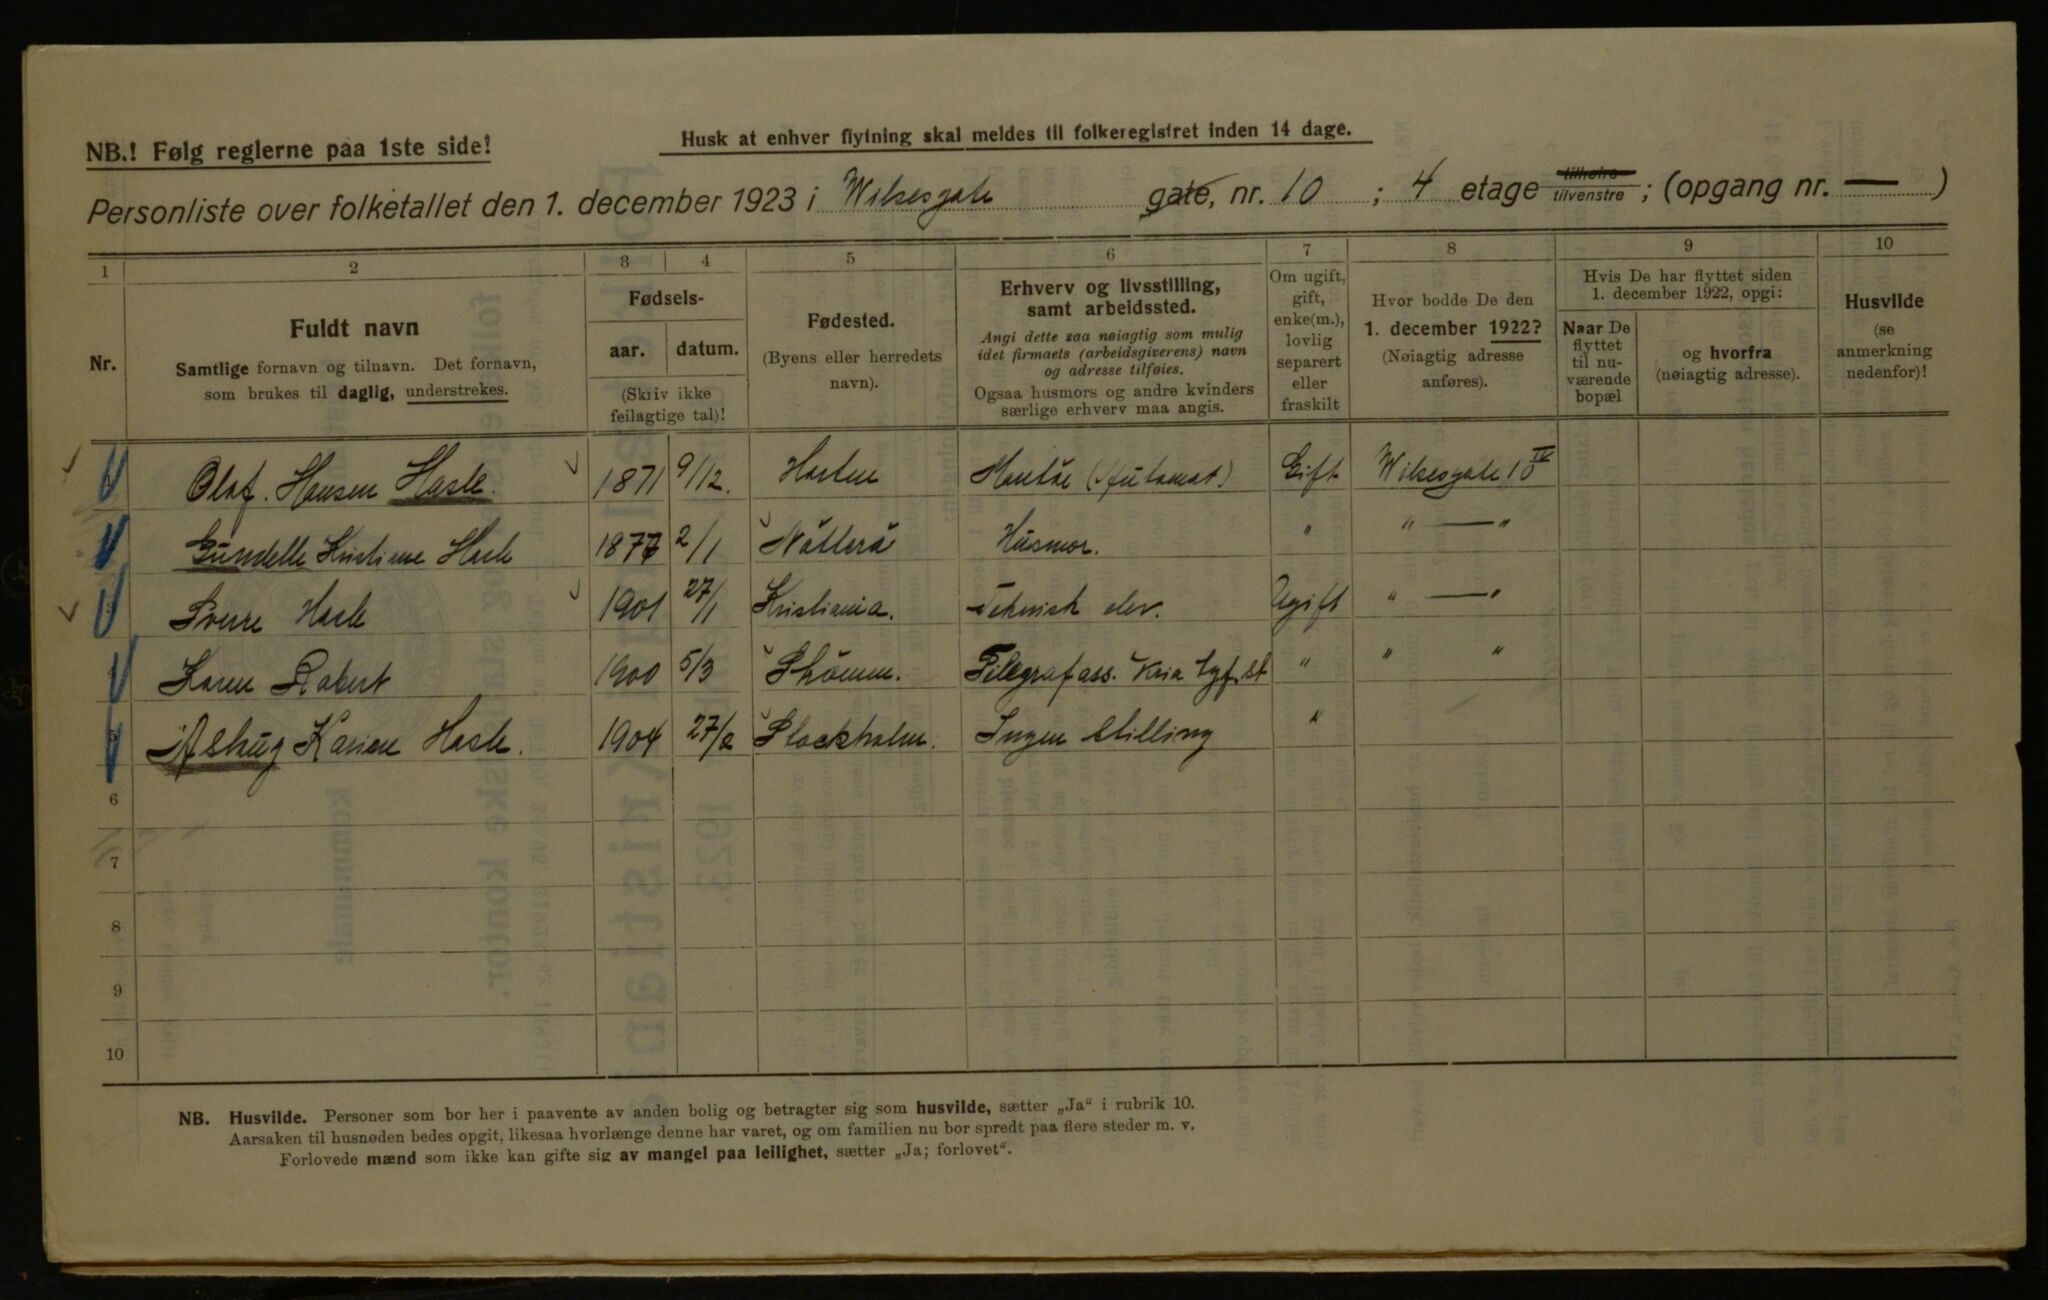 NB.! Følg reglerne paa 1ste side!
Husk at enhver flytning skal meldes til folkeregistret inden 14 dage.
Personliste over folketallet den 1. december 1923 i Wilsesgate gate, nr. 10 ; 4 etage tilhøire tilvenstre ; (opgang nr. — )
1 2 3 4 5 6 7 8 9 10
Nr.
Fuldt navn
Samtlige fornavn og tilnavn. Det fornavn,
som brukes til daglig, understrekes.
Fødsels-
aar. datum.
(Skriv ikke
feilagtige tal)!
Fødested.
(Byens eller herredets
navn).
Erhverv og livsstilling,
samt arbeidssted.
Angi dette saa nøiagtig som mulig
idet firmaets (arbeidsgiverens) navn
og adresse tilføies.
Ogsaa husmors og andre kvinders
særlige erhverv maa angis.
Om ugift,
gift,
enke(m.),
lovlig
separert
eller
fraskilt
Hvor bodde De den
1. december 1922?
(Nøiagtig adresse
anføres).
Hvis De har flyttet siden
1. december 1922, opgi:
Naar De
flyttet
til nu-
værende
bopæl
og hvorfra
(nøiagtig adresse).
Husvilde
(se
anmerkning
nedenfor)!
Olaf Hansen Hasle. 1871 9/12. Horten (Automat) Gift Wilsesgate 10 IV
Gundelle Kristiane Hasle 1877 2/1 Nötterö Husmor. " " — "
Sverre Hasle 1901 27/1 Kristiania. Teknisk elev. Ugift " — "
Karen Robert 1900 5/3 Strömm. Telegrafass. Kria " " "
5 Aslaug Karine Hasle. 1904 27/2 Stockholm. Ingen stilling "
6
7
8
9
10
NB. Husvilde. Personer som bor her i paavente av anden bolig og betragter sig som husvilde, sætter „Ja" i rubrik 10.
Aarsaken til husnøden bedes opgit, likesaa hvorlænge denne har varet, og om familien nu bor spredt paa flere steder m. v.
Forlovede mænd som ikke kan gifte sig av mangel paa leilighet, sætter „Ja; forlovet".